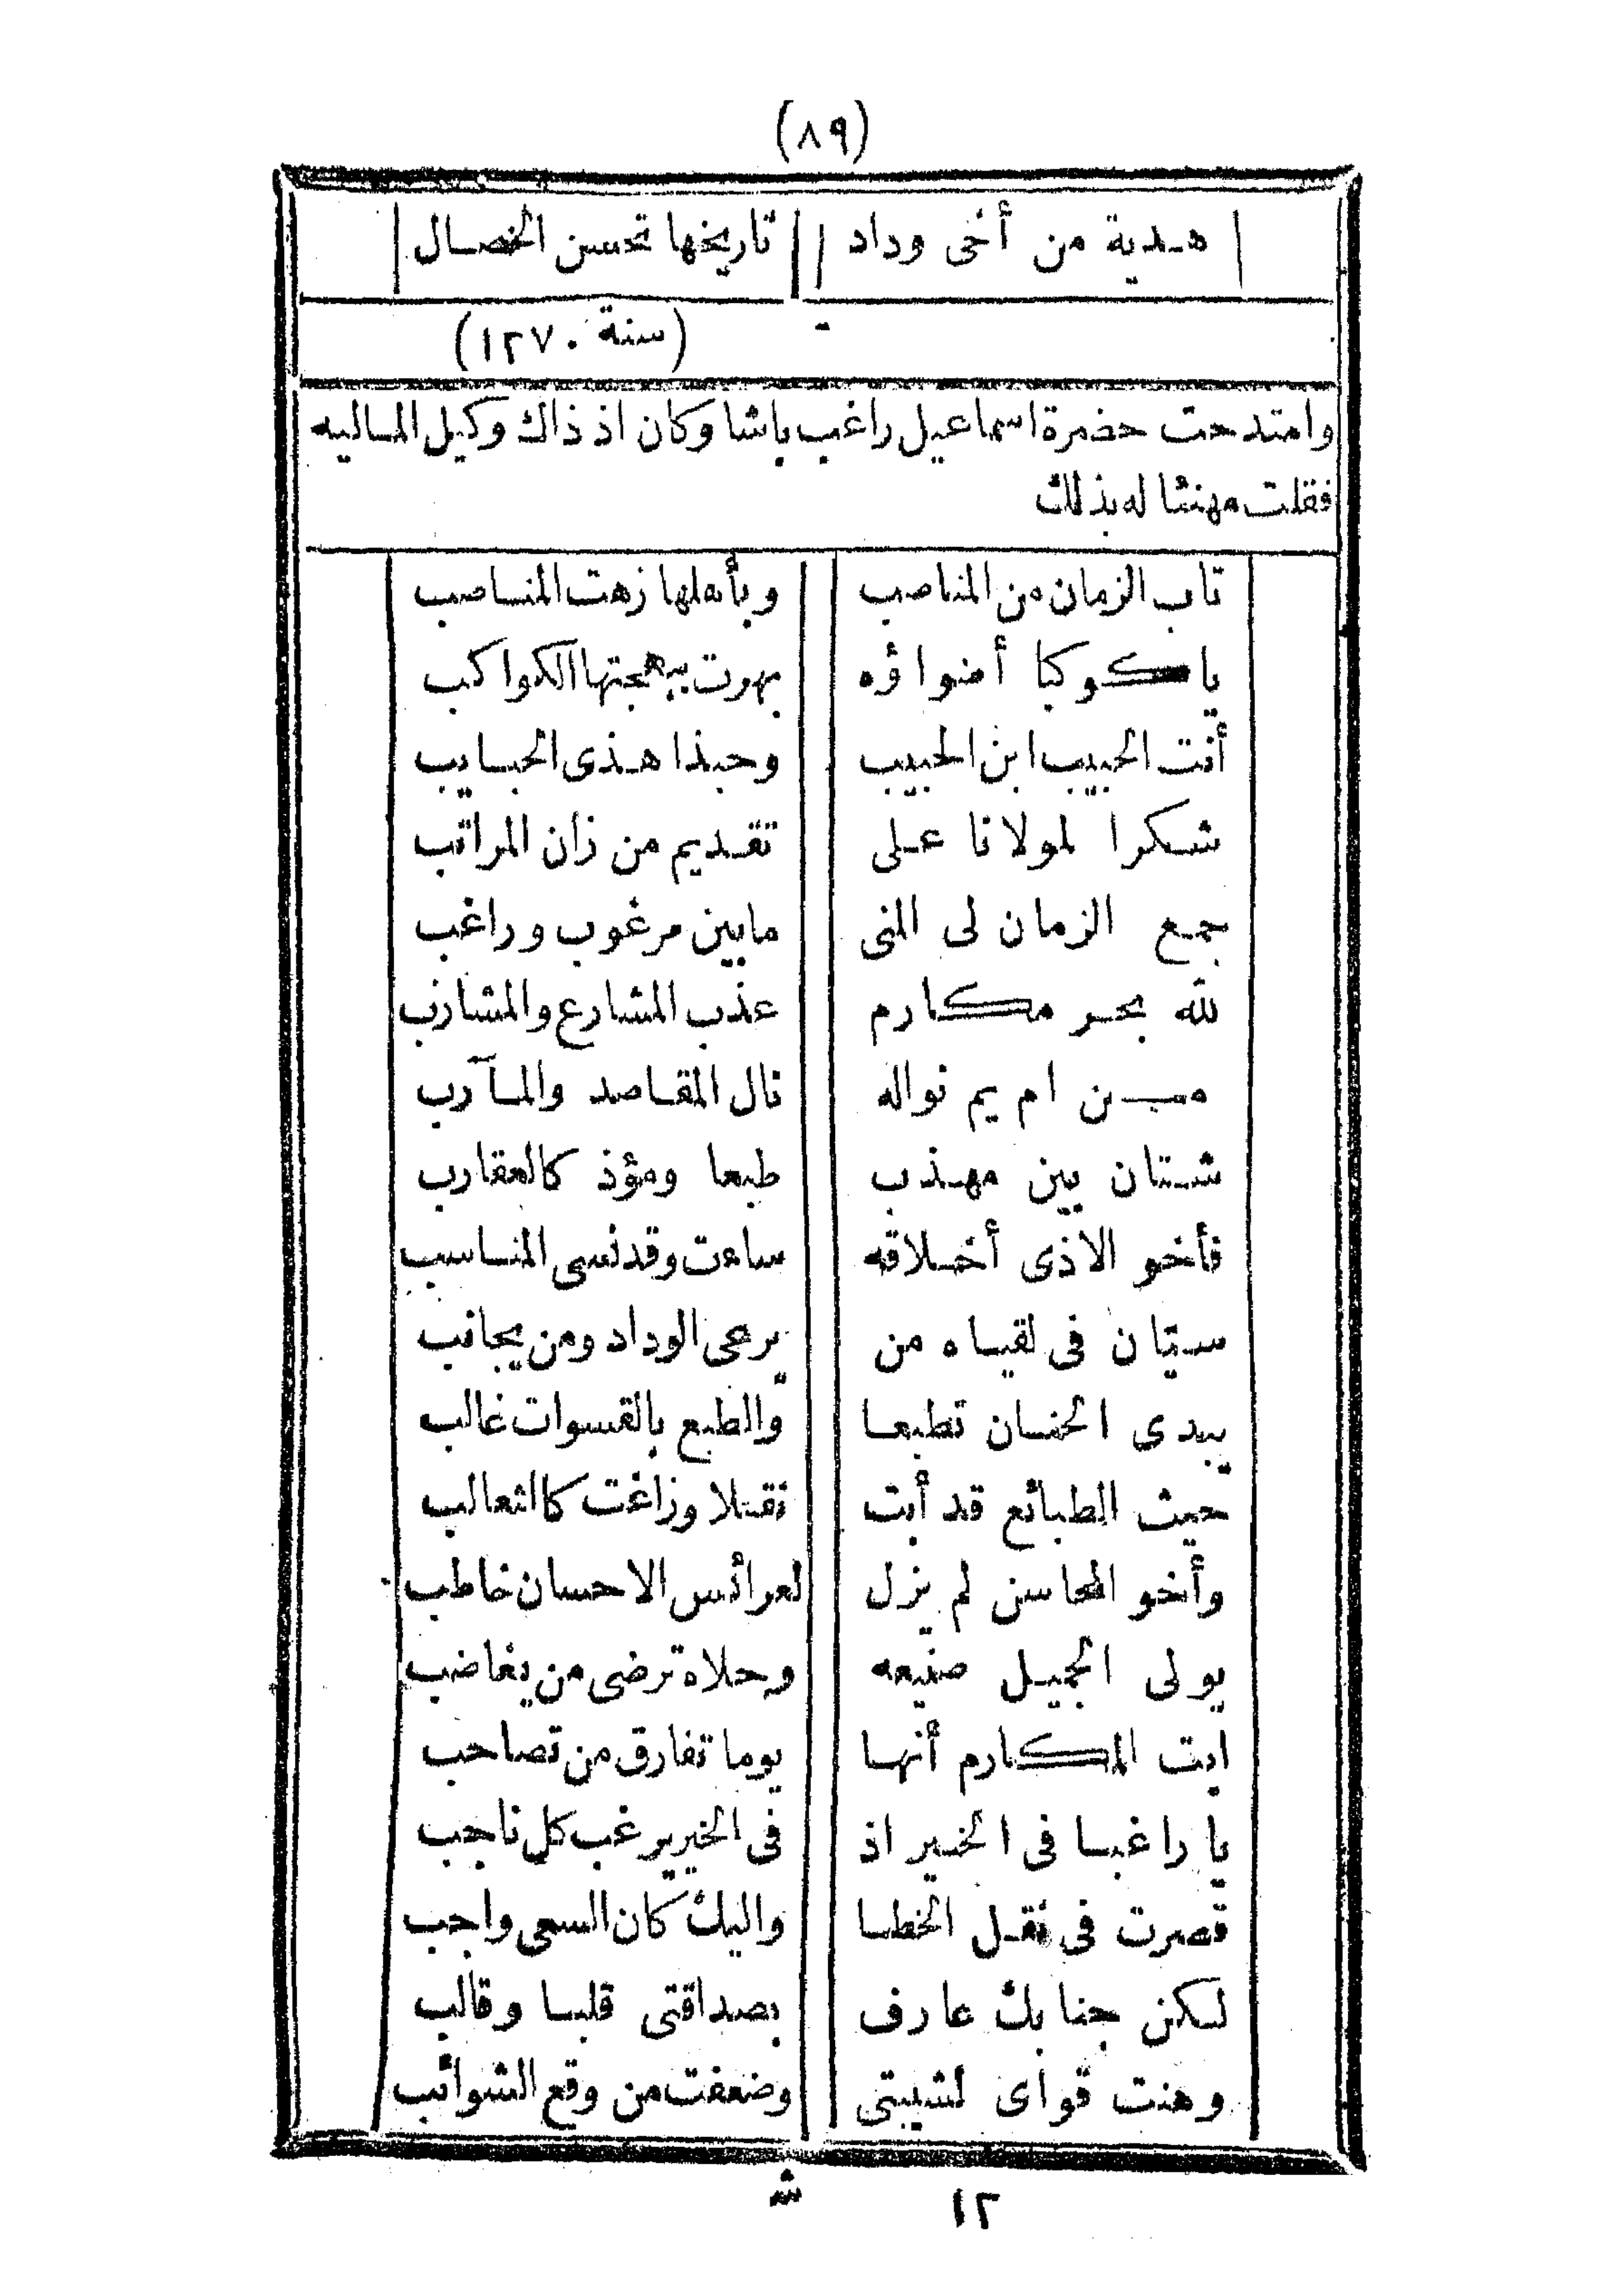 (٨٩)
هدية من أخى وداد تاريخها تحسن الخصال
(سنة ١٢٧٠)
وامتدحت حضرة اسماعيل راغب باشا وكان اذ ذاك وكيل الماليه
فقلت مهنئا له بذلك
تاب الزمان من المناصب وبأهلها زهت المناصب
يا كوكبا أضواؤه بهرت ببهجتها الكواكب
أنت الحبيب ابن الحبيب وحبذا هذى الحبايب
شكرا لمولانا على تقديم من زان المراتب
جمع الزمان لى المنى مابين مرغوب وراغب
لله بحر مكارم عذب المشارع والمشارب
من ام يم نواله نال المقاصد والمآرب
شتان بين مهذب طبعا ومؤذ كالعقارب
فأخو الاذى أخلاقه ساءت وقد نسى المناسب
سيان فى لقياه من يرعى الوداد ومن يجانب
يبدى الحنان تطبعا والطبع بالقسوات غالب
حيث الطبائع قد أبت نقتلا وزاغت كالثعالب
وأخو المحاسن لم يزل لعرائس الاحسان خاطب
يولى الجميل صنيعه وحلاه ترضى من يغاضب
ابت المكارم أنها يوما تفارق من تصاحب
يا راغبا فى الخير اذ فى الخير يرغب كل ناجب
قصرت فى نقل الخطا واليك كان السعى واجب
لكن جنابك عارف بصداقتى قلبا وقالب
وهنت قواى لشيبتى وضعفت من وقع الشوائب
١٢ ش